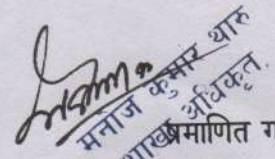 मनोज कुमार थारु
शाखा अधिकृत
प्रमाणित ग